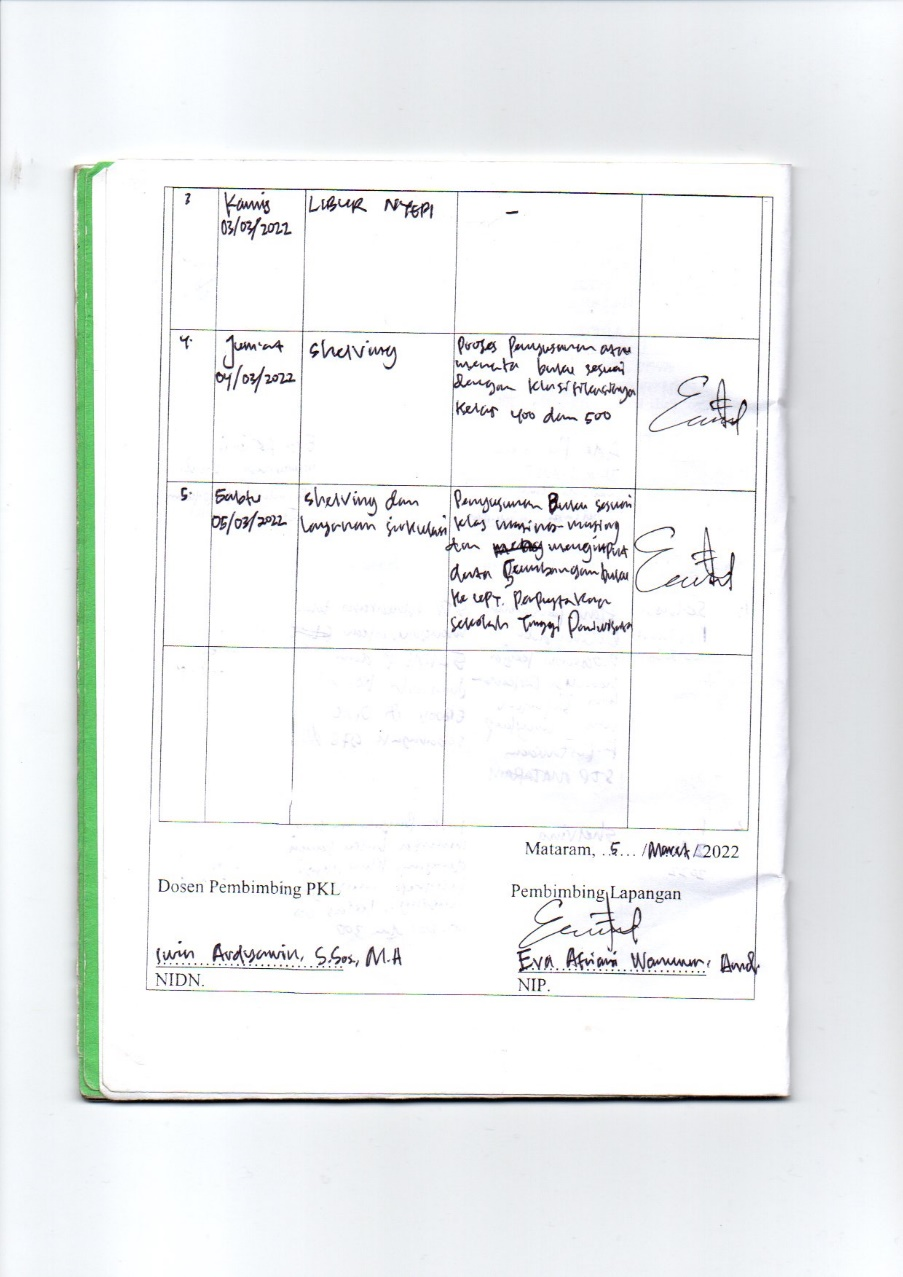 3
Kamis
03/03/2022
LIBUR NYEPI
-
4.
Jum'at
04/03/2022
Shelving
Proses Penyusunan atau
menata buku sesuai
dengan klasifikasinya
Kelas 400 dan 500
5.
Sabtu
05/03/2022
Shelving dan
Layanan sirkulasi
Penyusunan Buku sesuai
klas masing-masing
dan menginput
data Sumbangan buku
ke UPT. Perpustakaan
Sekolah Tinggi Pariwisata
Mataram, ..5... /Maret/2022
Dosen Pembimbing PKL
Pembimbing Lapangan
Iwin Ardyawin, S.Sos., M.A
Eva Afriani
NIDN.
NIP.